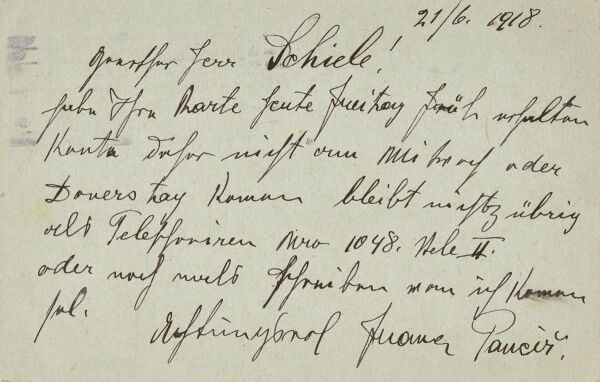 21/6. 1918.
Geerther Herr Schiele!
habe Ihre Karte heute Freitag Früh erhalten
Konte daher nicht am Mitwoch oder
Donerstag Komen bleibt nichtz übrig
als Telefoniren Nro 1048. Stele II.
oder noch mals schreiben wan ich Komen
sol.
Achtungsvol Franz